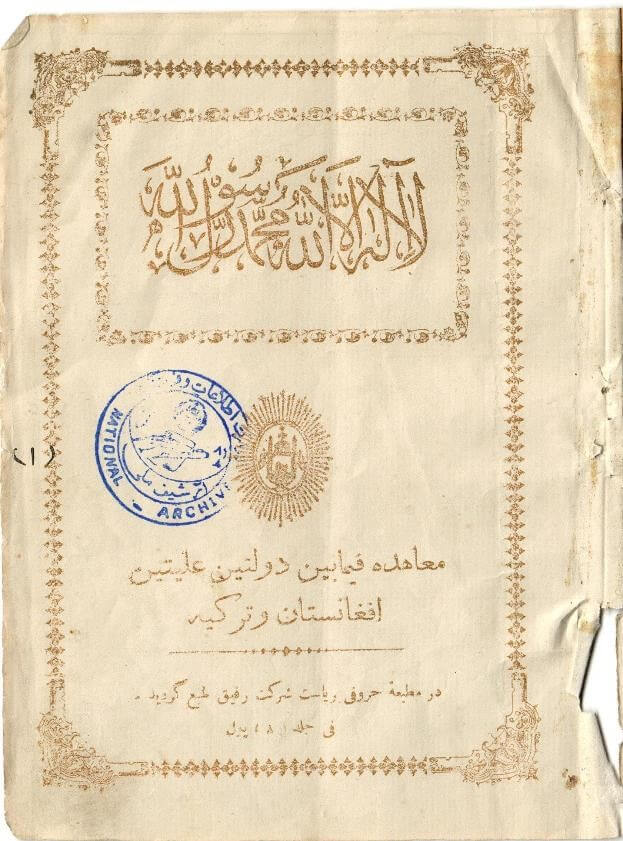 لا اله الا الله محمد رسول الله
اطلاعات و
آرشیف ملی
NATIONAL - ARCHIV
(۱)
معاهده فیمابین دولتین علیتین
افغانستان و ترکیه
در مطبعهٔ حروفی ریاست شرکت رفیق طبع گردید .
فی جلد (۸) پول